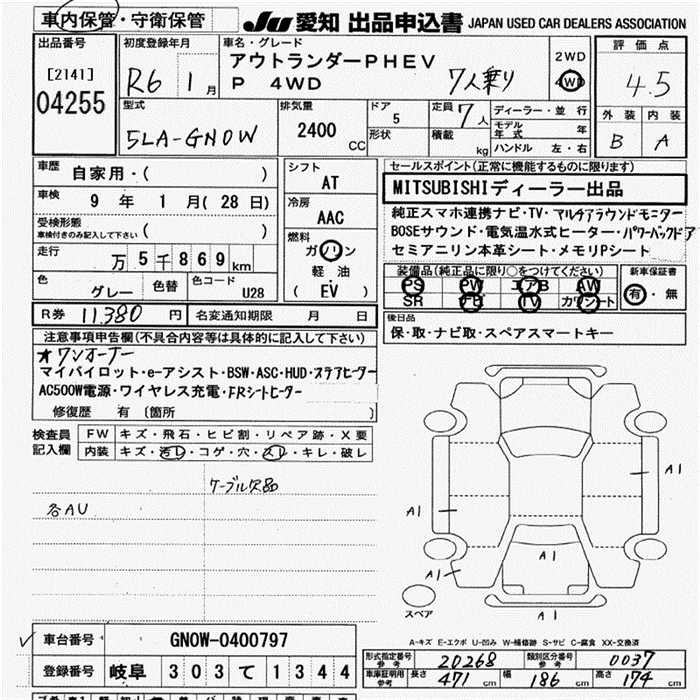 車内保管・守衛保管
JU 愛知 出品申込書 JAPAN USED CAR DEALERS ASSOCIATION
出品番号
[2141]
04255
初度登録年月
R6 1月
車名・グレード
アウトランダーPHEV
P 4WD
7人乗り
2WD
4WD
評価点
4.5
外装 内装
B A
型式
5LA-GN0W
排気量
2400 CC
ドア
5
形状
定員 7人
積載 kg
ディーラー・並行
モデル年式 年
ハンドル 左・右
車歴
自家用・( )
車検
9年 1月(28日)
受検形態
車検付きのみ記入して下さい
( )
走行
万5千869km
色
グレー
色替
色コード
U28
シフト
AT
冷房
AAC
燃料
ガソリン
軽油
(EV)
セールスポイント(正常に機能するものに限ります)
MITSUBISHIディーラー出品
純正スマホ連携ナビ・TV・マルチアラウンドモニター
BOSEサウンド・電気温水式ヒーター・パワーバックドア
セミアニリン本革シート・メモリPシート
装備品(純正品に限り○をつけてください)
PS PW エアB AW
SR TV カワシート
新車保証書
有・無
後日品
保・取・ナビ取・スペアスマートキー
R券 11,380円
名変通知期限 月 日
注意事項申告欄(不具合内容等は具体的に記入して下さい)
★ワンオーナー
マイパイロット・e-アシスト・BSW・ASC・HUD・ステアヒーター
AC500W電源・ワイヤレス充電・FRシートヒーター
修復歴 有 〔箇所 〕
検査員記入欄
FW キズ・飛石・ヒビ割・リペア跡・X要
内装 キズ・汚レ・コゲ・穴・スレ・キレ・破レ
ケーブル欠品
各AU
A1
A1
A1
A1
A1
スペア
A-キズ E-エクボ U-凹み W-補修跡 S-サビ C-腐食 XX-交換済
車台番号
GN0W-0400797
登録番号
岐阜 303 て 1344
形式指定番号 参考
20268
類別区分番号 参考
0037
車庫証明用 参考
長さ 471cm
幅 186cm
高さ 174cm